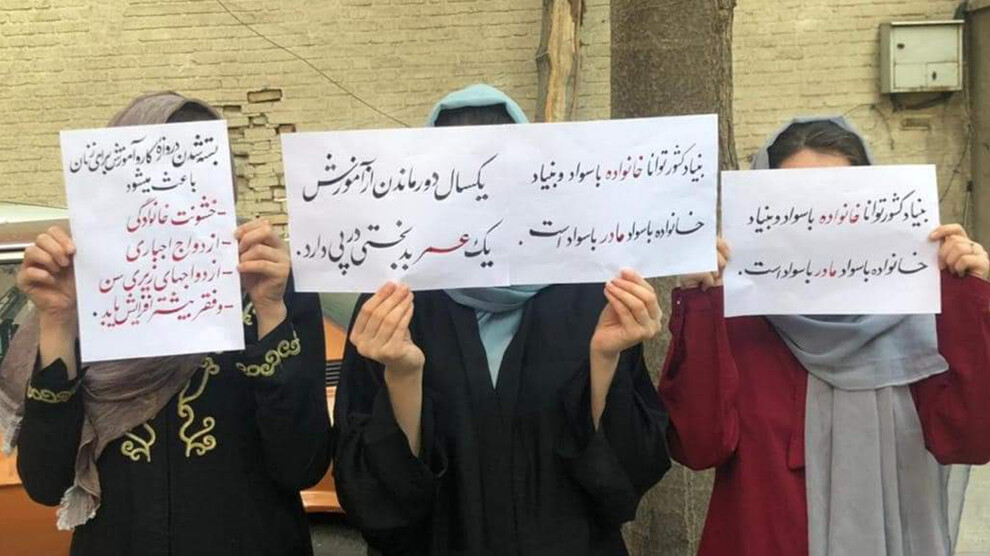 بنیاد کشور توانا خانواده باسواد و بنیاد
خانواده باسواد مادر باسواد است.
بنیاد کشور توانا خانواده باسواد و بنیاد
خانواده باسواد مادر باسواد است.
یکسال دور ماندن از آموزش
یک عمر بدبختی در پی دارد.
بسته شدن دروازهٔ کار و آموزش برای زنان
باعث میشود
-خشونت خانوادگی
-ازدواج اجباری
-ازدواجهای زیری سن
-و فقر بیشتر افزایش یابد.